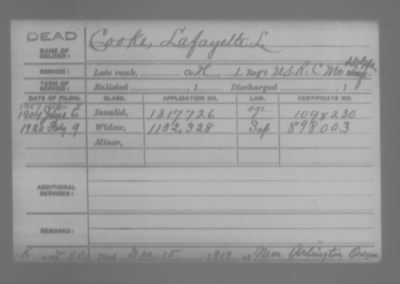 DEAD
NAME OF SOLDIER: Cooke, Lafayette L
SERVICE: Late rank, Co. K 1 Reg't U.S.R.C. Mo
TERM OF SERVICE: Enlisted , 1 Discharged , 1
DATE OF FILING. CLASS. APPLICATION NO. LAW. CERTIFICATE NO.
1904 June 6 Invalid, 1317726 age 1098230
1920 Feby 9 Widow, 1152,328 898003
Minor,
ADDITIONAL SERVICES:
REMARKS:
Dec 15 1919, at Near Arlington Oregon